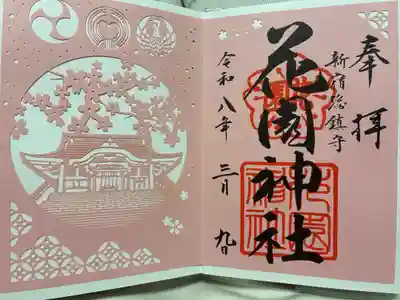 奉拝
新宿総鎮守
花園神社
令和八年 三月 九日
花園神社